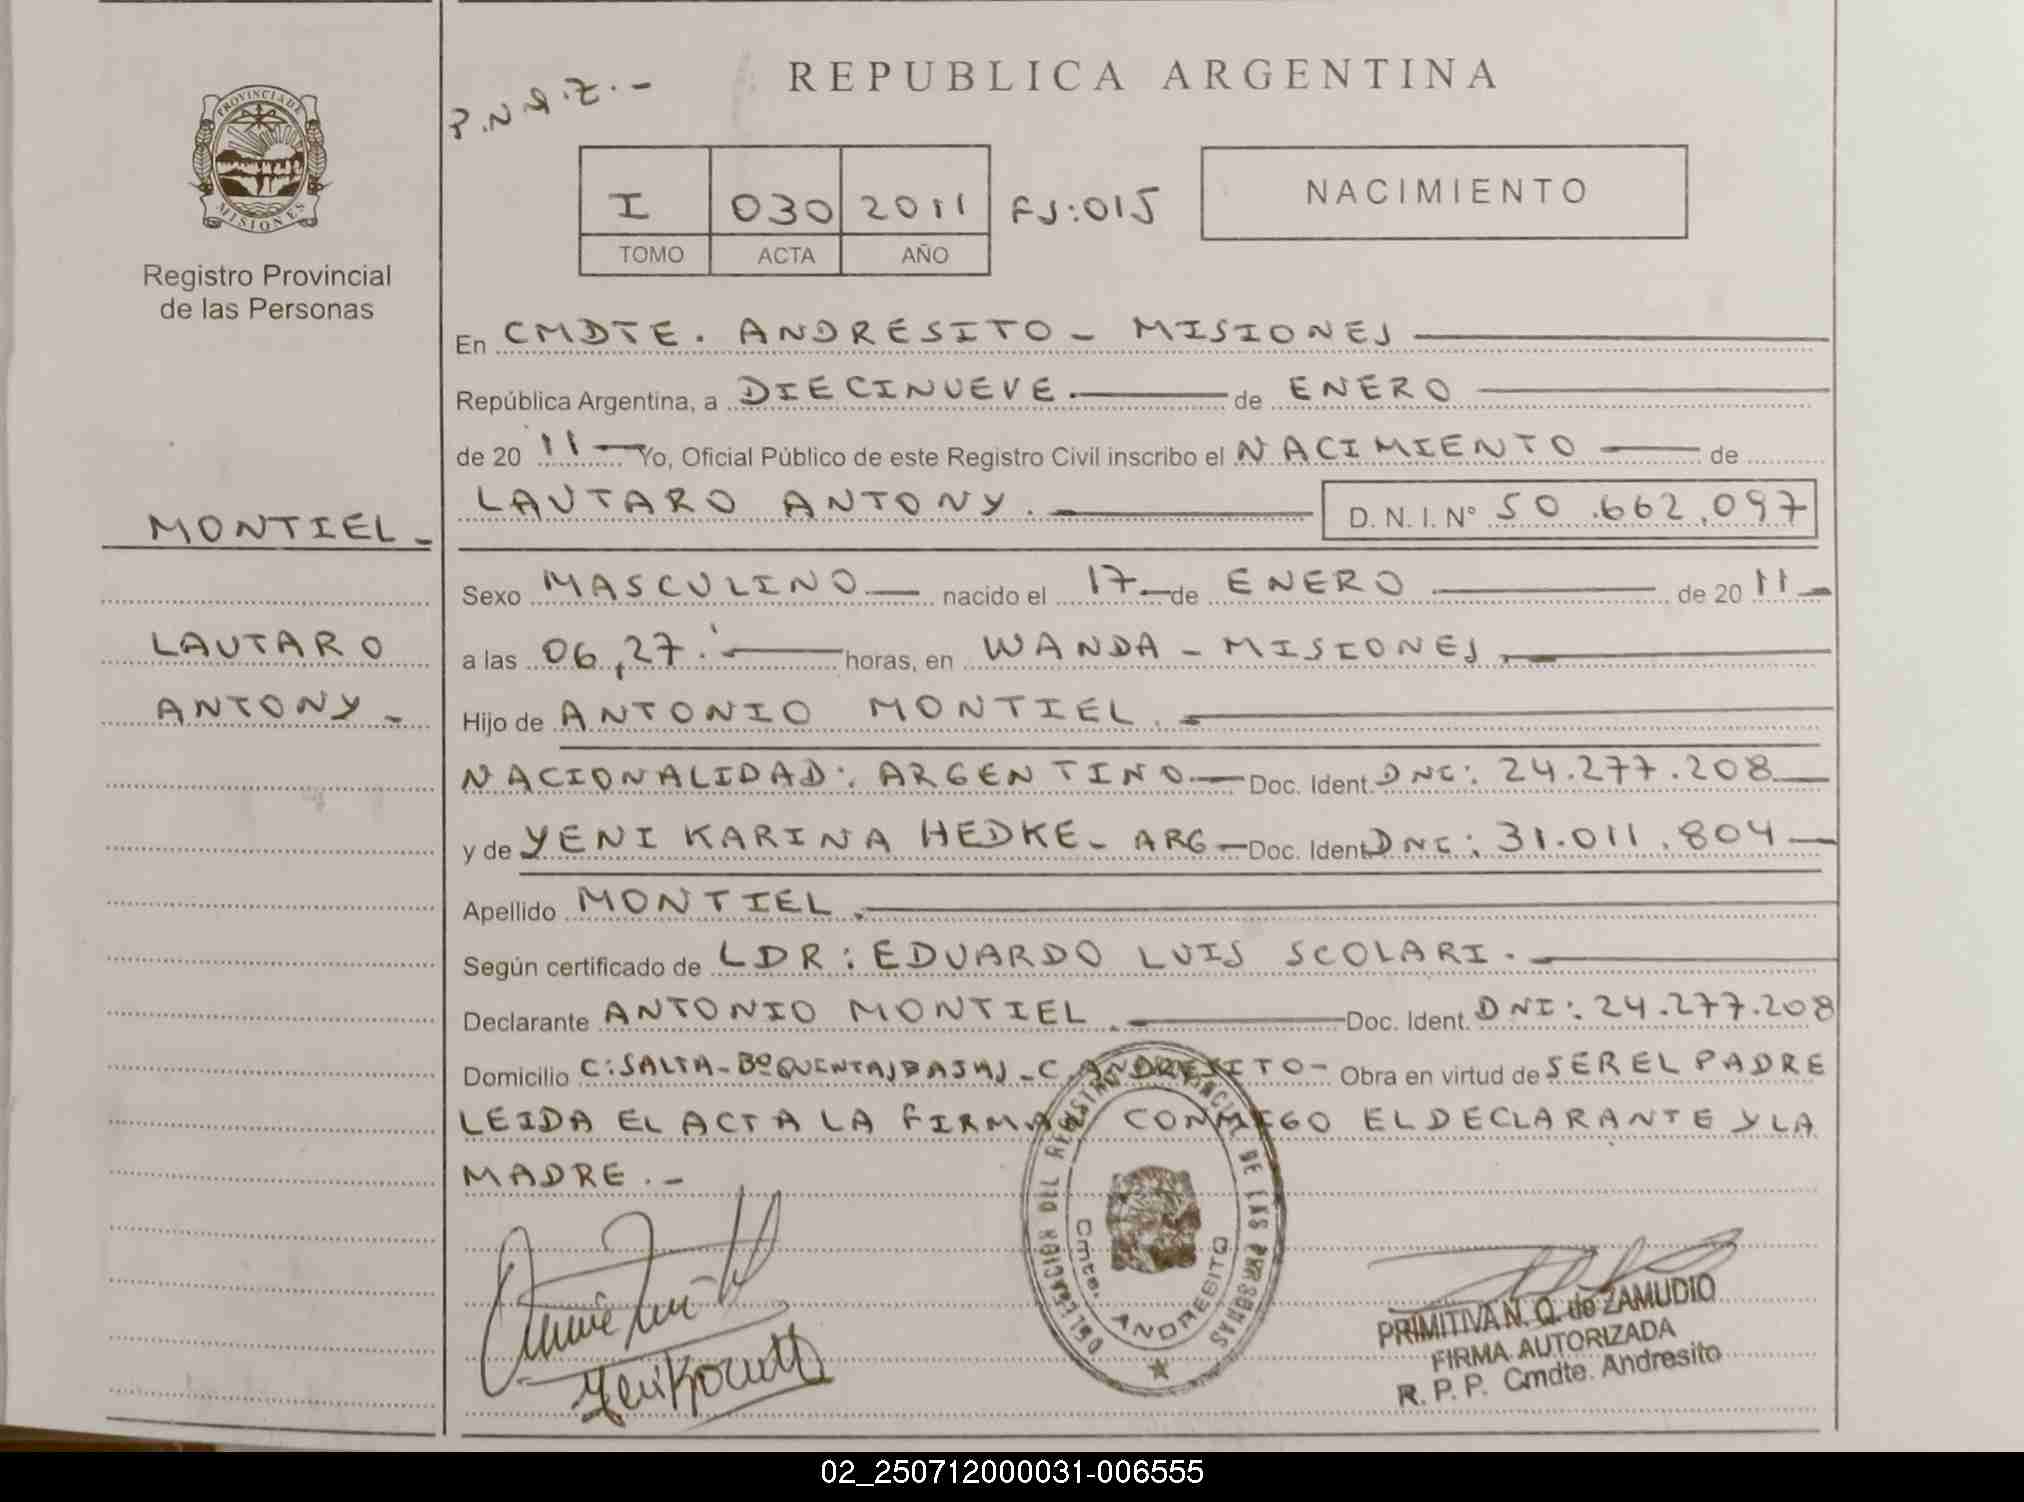 REPUBLICA ARGENTINA
PROVINCIA DE
MISIONES
Registro Provincial
de las Personas
P.N.A.Z.-
I 030 2011 FJ:015
TOMO ACTA AÑO
NACIMIENTO
En CMDTE. ANDRESITO - MISIONES
República Argentina, a DIECINUEVE. de ENERO
de 20 11 Yo, Oficial Público de este Registro Civil inscribo el NACIMIENTO de
LAUTARO ANTONY. D. N. I. N° 50.662.097
MONTIEL -
LAUTARO
ANTONY -
Sexo MASCULINO nacido el 17 de ENERO de 20 11
a las 06,27. horas, en WANDA - MISIONES
Hijo de ANTONIO MONTIEL.
NACIONALIDAD: ARGENTINO. Doc. Ident. DNI: 24.277.208
y de YENI KARINA HEDKE - ARG Doc. Ident. DNI: 31.011.804
Apellido MONTIEL.
Según certificado de LDR: EDUARDO LUIS SCOLARI.
Declarante ANTONIO MONTIEL. Doc. Ident. DNI: 24.277.208
Domicilio C: SALTA - Bº - C. ANDRESITO - Obra en virtud de SER EL PADRE
LEIDA EL ACTA LA FIRMAN CONMIGO EL DECLARANTE Y LA
MADRE.-
DELEGACION DEL REGISTRO PROVINCIAL DE LAS PERSONAS
Cmte. ANDRESITO
PRIMITIVA N. Q. de ZAMUDIO
FIRMA AUTORIZADA
R. P. P. Cmdte. Andresito
02_250712000031-006555